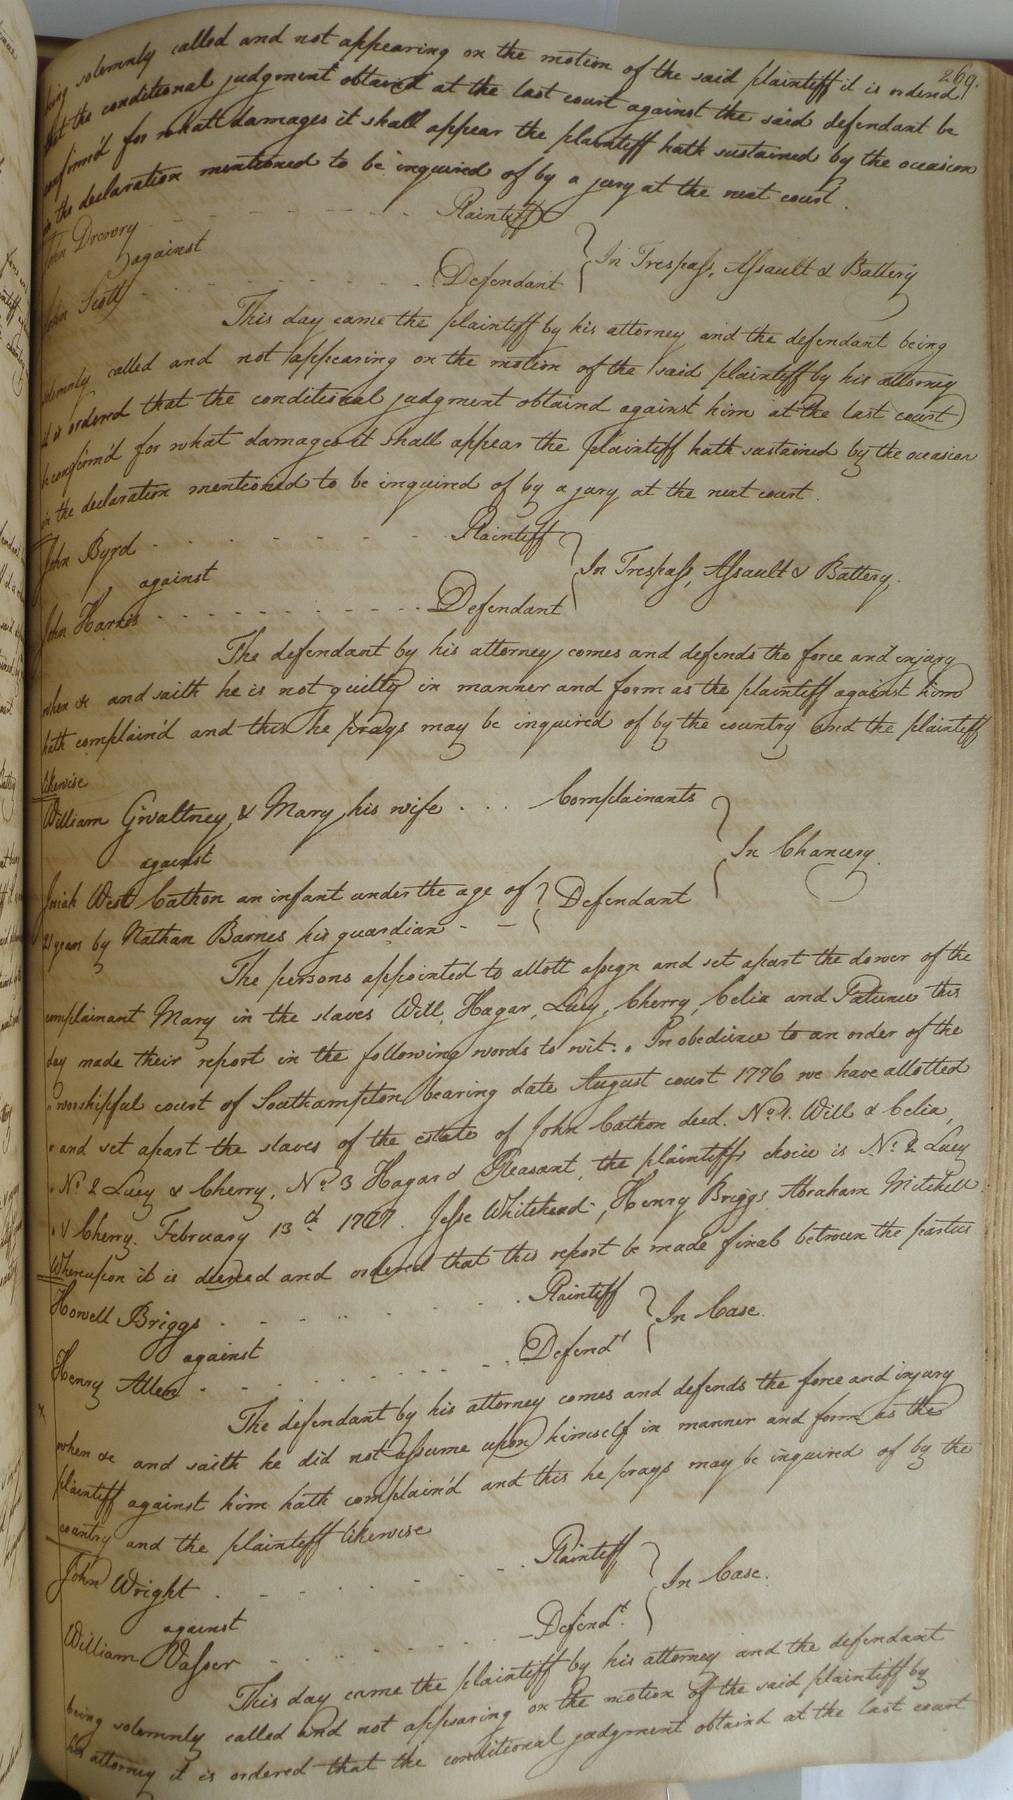 269.
being solemnly called and not appearing on the motion of the said plaintiff it is ordered
that the conditional judgment obtained at the last court against the said defendant be
confirm'd for what damages it shall appear the plaintiff hath sustained by the occasion
in the declaration mentioned to be inquired of by a jury at the next court.
John Drewry - - - - - - Plaintiff
against } In Trespass, Assault & Battery
John Scott - - - - - - Defendant
This day came the plaintiff by his attorney and the defendant being
solemnly called and not appearing on the motion of the said plaintiff by his attorney
it is ordered that the conditional judgment obtaind against him at the last court
be confirm'd for what damages it shall appear the Plaintiff hath sustained by the occasion
in the declaration mentioned to be inquired of by a jury at the next court.
John Byrd - - - - - - Plaintiff
against } In Trespass, Assault & Battery.
John Harris - - - - - - Defendant
The defendant by his attorney comes and defends the force and injury
when &c and saith he is not guilty in manner and form as the plaintiff against him
hath complain'd and this he prays may be inquired of by the country and the plaintiff
likewise
William Gwaltney & Mary his wife . . . Complainants
against } In Chancery.
Josiah West Cathon an infant under the age of } Defendant
21 years by Nathan Barnes his guardian - -
The persons appointed to allott assign and set apart the dower of the
complainant Mary in the slaves Will, Hagar, Lucy, Cherry, Celia and Patience this
day made their report in the following words to wit. " In obedience to an order of the
" worshipful court of Southampton bearing date August court 1776 we have allotted
" and set apart the slaves of the estate of John Cathon decd. No. 1. Will & Celia,
" No. 2 Lucy & Cherry, No. 3 Hagar & Pleasant, the plaintiffs choice is No. 2 Lucy
" & Cherry. February 13th 1777. Jesse Whitehead, Henry Briggs, Abraham Mitchell.
Whereupon it is decreed and ordered that this report be made final between the parties
Howell Briggs - - - - - - Plaintiff
against } In Case.
Henry Allen - - - - - - Defendt
The defendant by his attorney comes and defends the force and injury
when &c and saith he did not assume upon himself in manner and form as the
plaintiff against him hath complain'd and this he prays may be inquired of by the
country and the plaintiff likewise
John Wright - - - - - - Plaintiff
against } In Case.
William Vasser - - - - - - Defendt.
This day came the plaintiff by his attorney and the defendant
being solemnly called and not appearing on the motion of the said plaintiff by
his attorney it is ordered that the conditional judgment obtaind at the last court